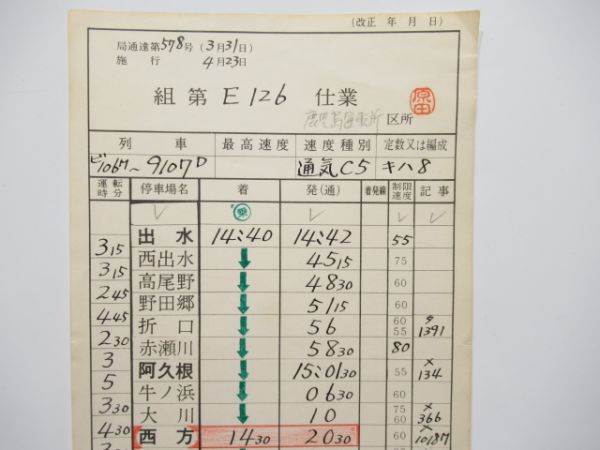 (改正 年 月 日)
局通達第578号(3月31日)
施行 4月23日
組第E126仕業
原田
鹿児島運転所 区所
列車 最高速度 速度種別 定数又は編成
9107D 通気C5 キハ8
運転時分 停車場名 着 発(通) 着発線 制限速度 記事
乗
出水 14:40 14:42 55
3 15
西出水 45 15 75
3 15
高尾野 48 30 60
2 45
野田郷 51 15 60
4 45
折口 56 60 55 1391
2 30
赤瀬川 58 30 80
3
阿久根 15:01 30 55 × 134
5
牛ノ浜 06 30 60
3 30
大川 10 75 60 × 366
4 30
西方 14 30 20 30 60 × 1018D